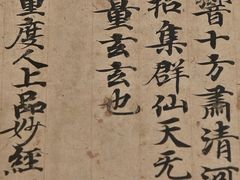 響十方肅清河
招集群仙天无
量玄玄也
量度人上品妙經